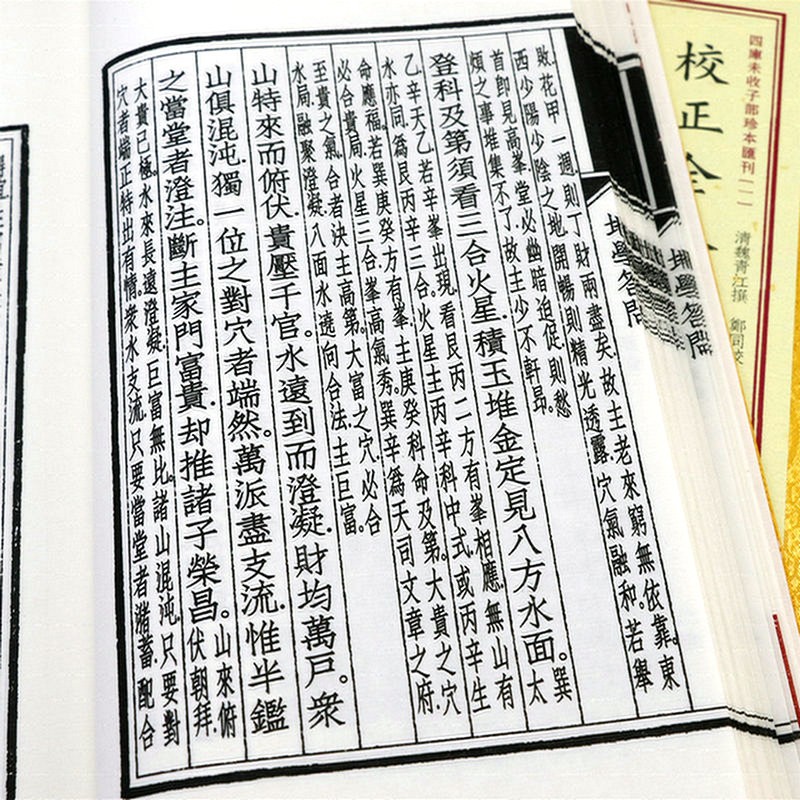 四庫未收子部珍本匯刊(一)
校正全
清魏青江撰 鄭同校
地學答問
地學答問
敗.花甲一週.則丁財兩盡矣.故主老來窮無依靠。東
西少陽少陰之地.開暢則精光透露.穴氣融和。若舉
首卽見高峯.堂必幽暗迫促.則愁
煩之事堆集不了.故主少不軒昂。
登科及第須看三合火星.積玉堆金定見八方水面。巽
太
乙辛天乙.若辛峯出現.看艮丙二方有峯相應.無山有
水亦同.爲艮丙辛三合.火星主丙辛科中式.或丙辛生
命應福。若巽庚癸方有峯.主庚癸科命及第。大貴之穴
必合貴局.火星三合.峯高氣秀.巽辛爲天司文章之府.
至貴之氣.合者決主高第。大富之穴必合
水局.融聚澄凝.八面水遶向合法.主巨富。
山特來而俯伏.貴壓千官。水遠到而澄凝.財均萬戶。衆
山俱混沌.獨一位之對穴者端然。萬派盡支流.惟半鑑
之當堂者澄注。斷主家門富貴.却推諸子榮昌。山來俯
伏朝拜.
大貴已極。水來長遠澄凝.巨富無比。諸山混沌.只要對
穴者端正特出有情。衆水支流.只要當堂者潴蓄.配合